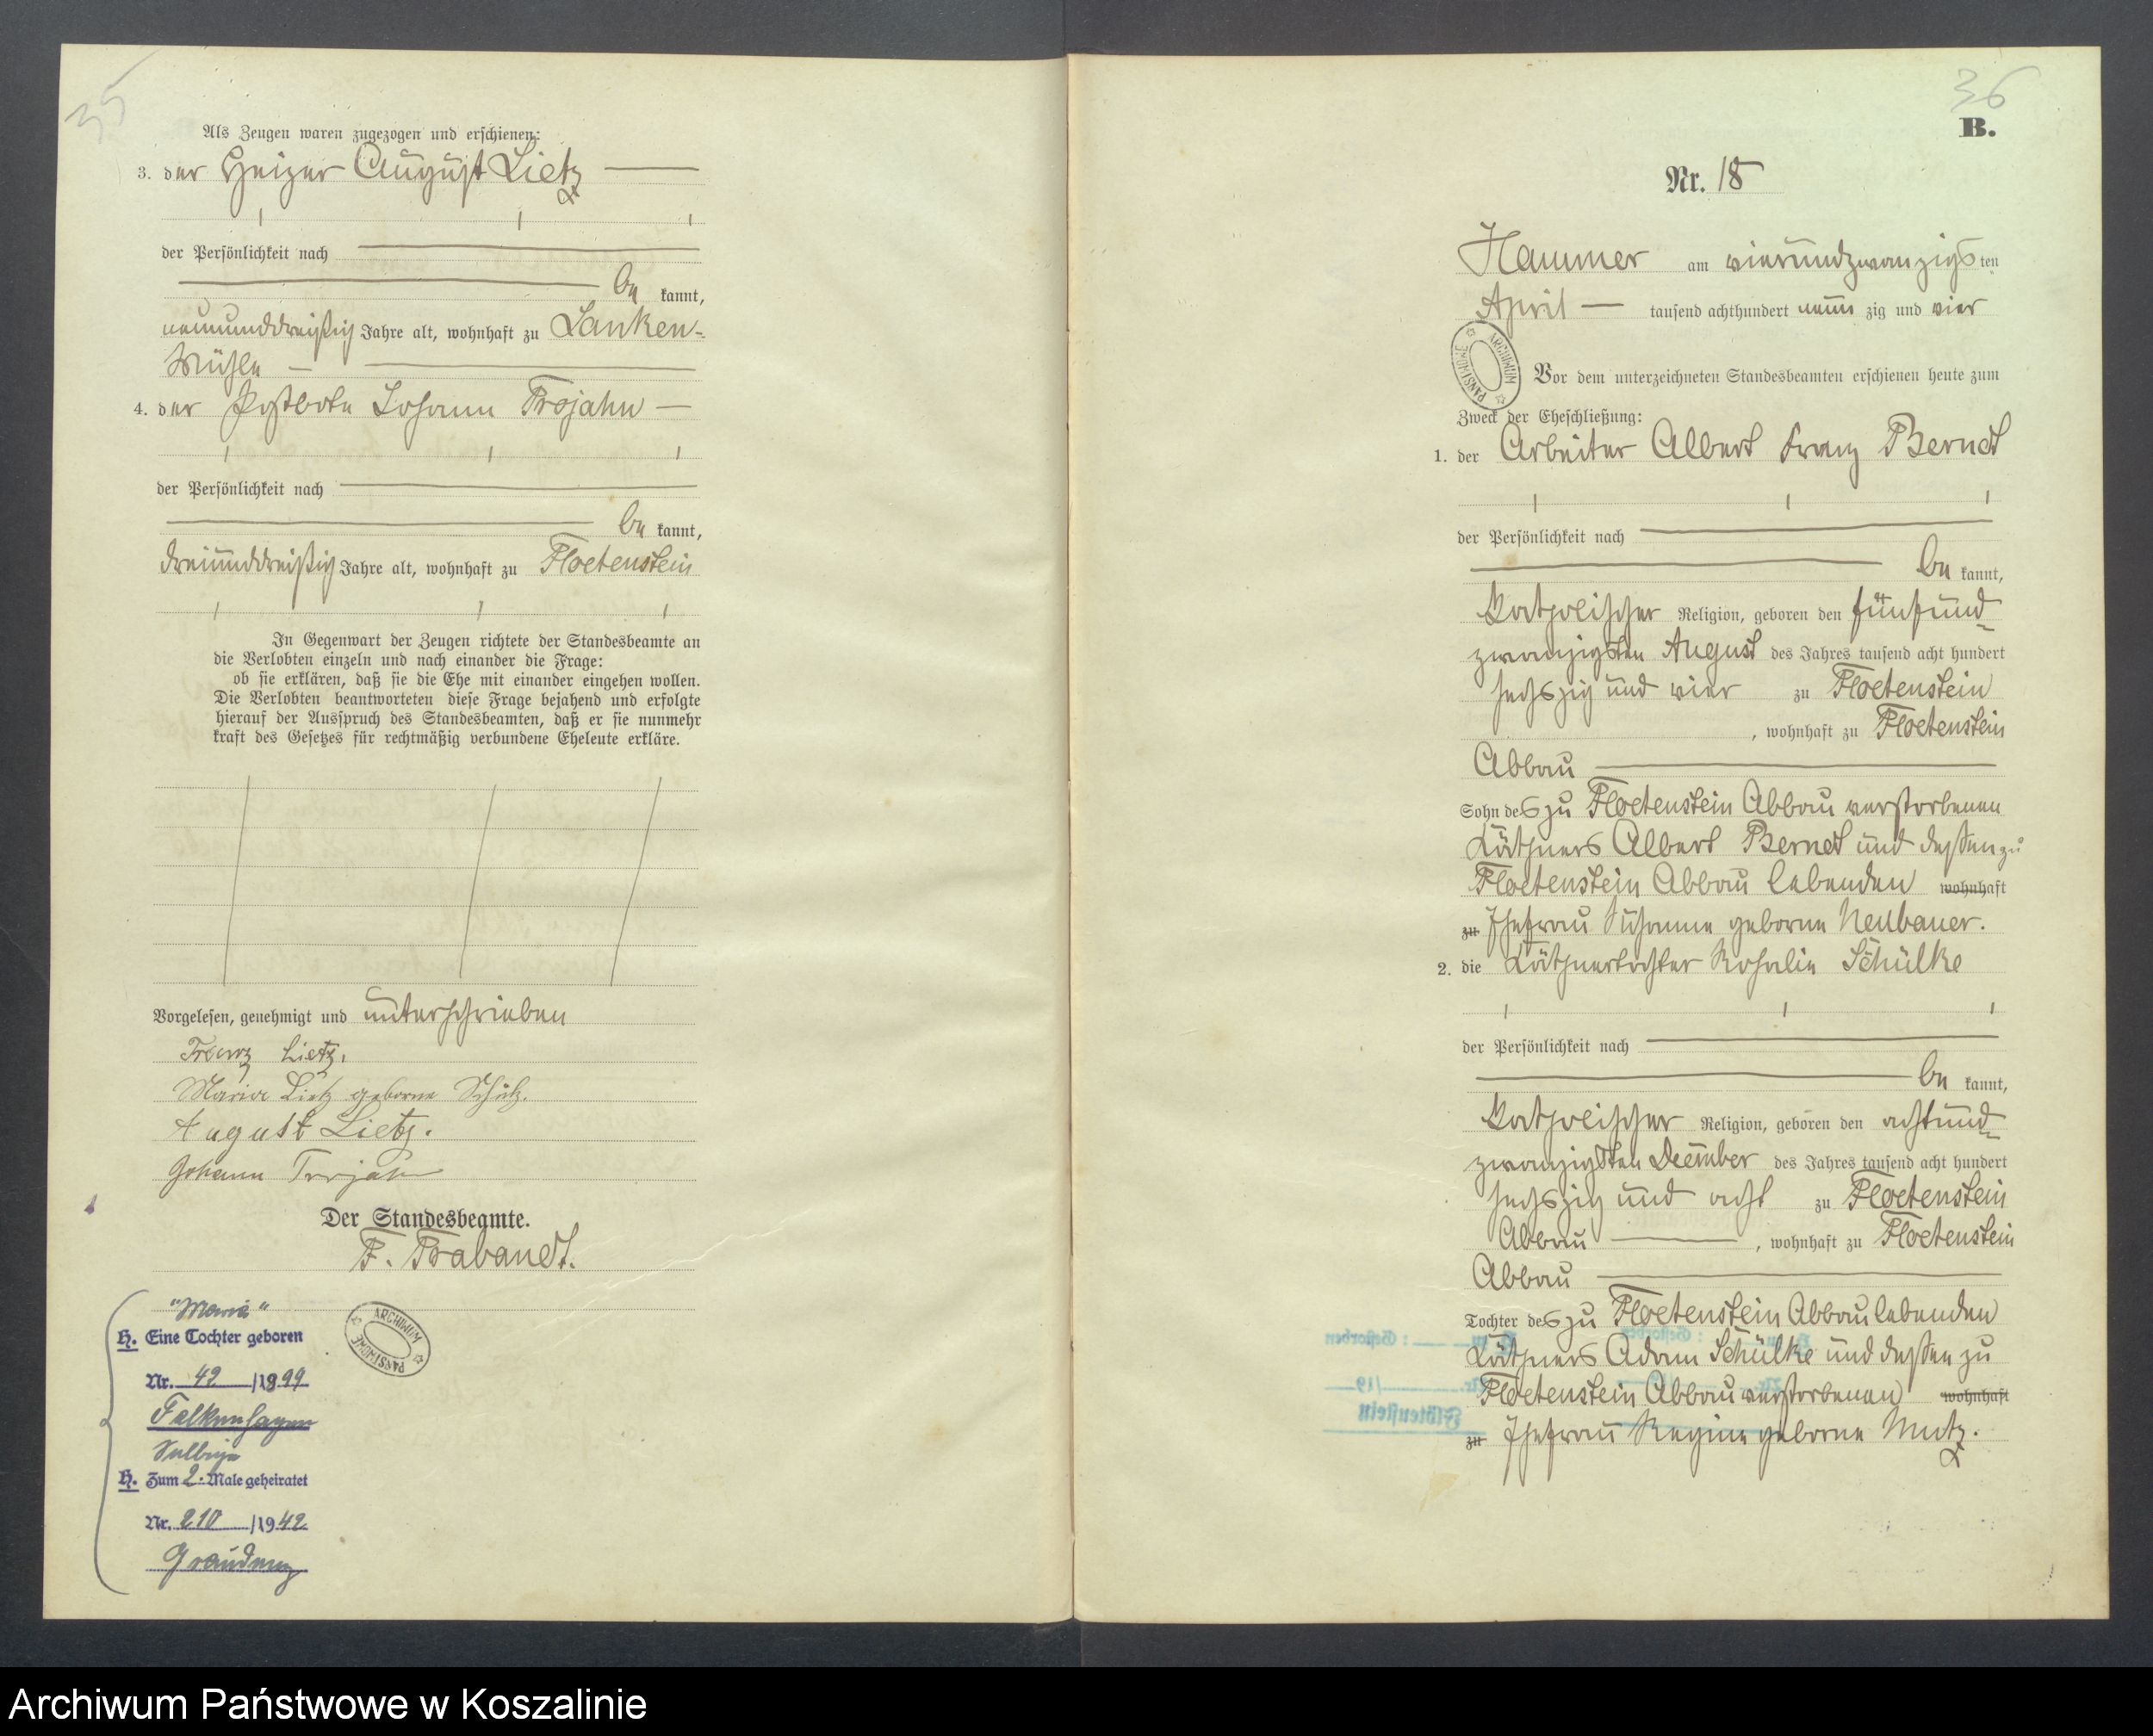 35
Als Zeugen waren zugezogen und erschienen:
3. der Heizer August Lietz
der Persönlichkeit nach
be kannt,
neununddreißig Jahre alt, wohnhaft zu Lanken-
Mühle
4. der Postbote Johann Trojahn
der Persönlichkeit nach
be kannt,
dreiunddreißig Jahre alt, wohnhaft zu Floetenstein
In Gegenwart der Zeugen richtete der Standesbeamte an
die Verlobten einzeln und nach einander die Frage:
ob sie erklären, daß sie die Ehe mit einander eingehen wollen.
Die Verlobten beantworteten diese Frage bejahend und erfolgte
hierauf der Ausspruch des Standesbeamten, daß er sie nunmehr
kraft des Gesetzes für rechtmäßig verbundene Eheleute erkläre.
Vorgelesen, genehmigt und unterschrieben
Franz Lietz.
Maria Lietz geborne Schütz.
August Lietz.
Johann Trojahn
Der Standesbeamte.
F. Brabandt.
"Maria"
H. Eine Tochter geboren
Nr. 42 /1899
Falkenhagen
H. Zum 2. Male geheiratet
Nr. 210 /1942
Graudenz
ARCHIWUM PAŃSTWOWE
36
B.
Nr. 18
Hammer am vierundzwanzigsten
April tausend achthundert neunzig und vier
ARCHIWUM PAŃSTWOWE
Vor dem unterzeichneten Standesbeamten erschienen heute zum
Zweck der Eheschließung:
1. der Arbeiter Albert Franz Berndt
der Persönlichkeit nach
be kannt,
katholischer Religion, geboren den fünfund-
zwanzigsten August des Jahres tausend acht hundert
sechszig und vier zu Floetenstein
, wohnhaft zu Floetenstein
Abbau
Sohn des zu Floetenstein Abbau verstorbenen
Käthners Albert Berndt und dessen zu
Floetenstein Abbau lebenden wohnhaft
zu Ehefrau Susanna geborne Neubauer.
2. die Käthnertochter Rosalie Schülke
der Persönlichkeit nach
be kannt,
katholischer Religion, geboren den achtund-
zwanzigsten December des Jahres tausend acht hundert
sechszig und acht zu Floetenstein
Abbau , wohnhaft zu Floetenstein
Abbau
Tochter des zu Floetenstein Abbau lebenden
Käthners Adam Schülke und dessen zu
Floetenstein Abbau verstorbenen wohnhaft
zu Ehefrau Regine geborne Mutz.
Archiwum Państwowe w Koszalinie